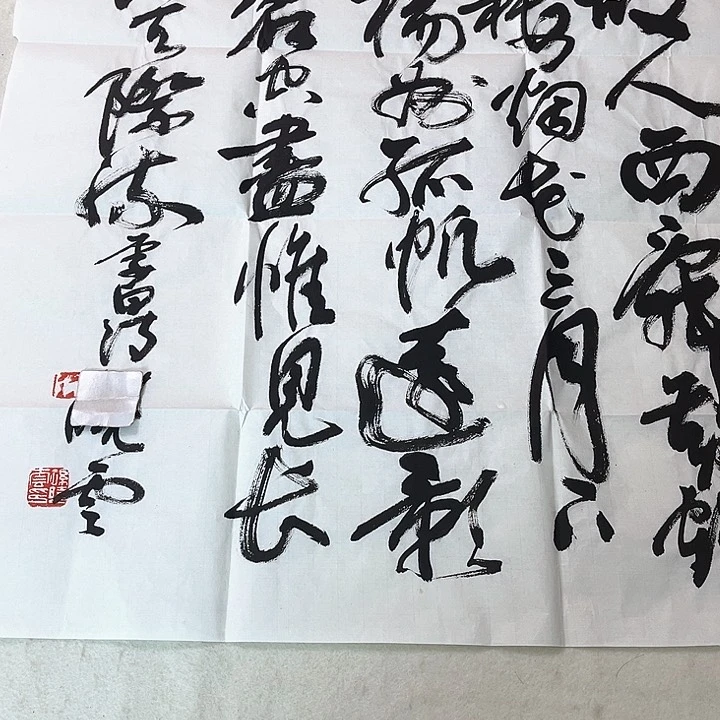 故人西辭黃鶴
樓烟花三月下
揚州孤帆遠影
碧空盡惟見长
天際流 李白詩
雲